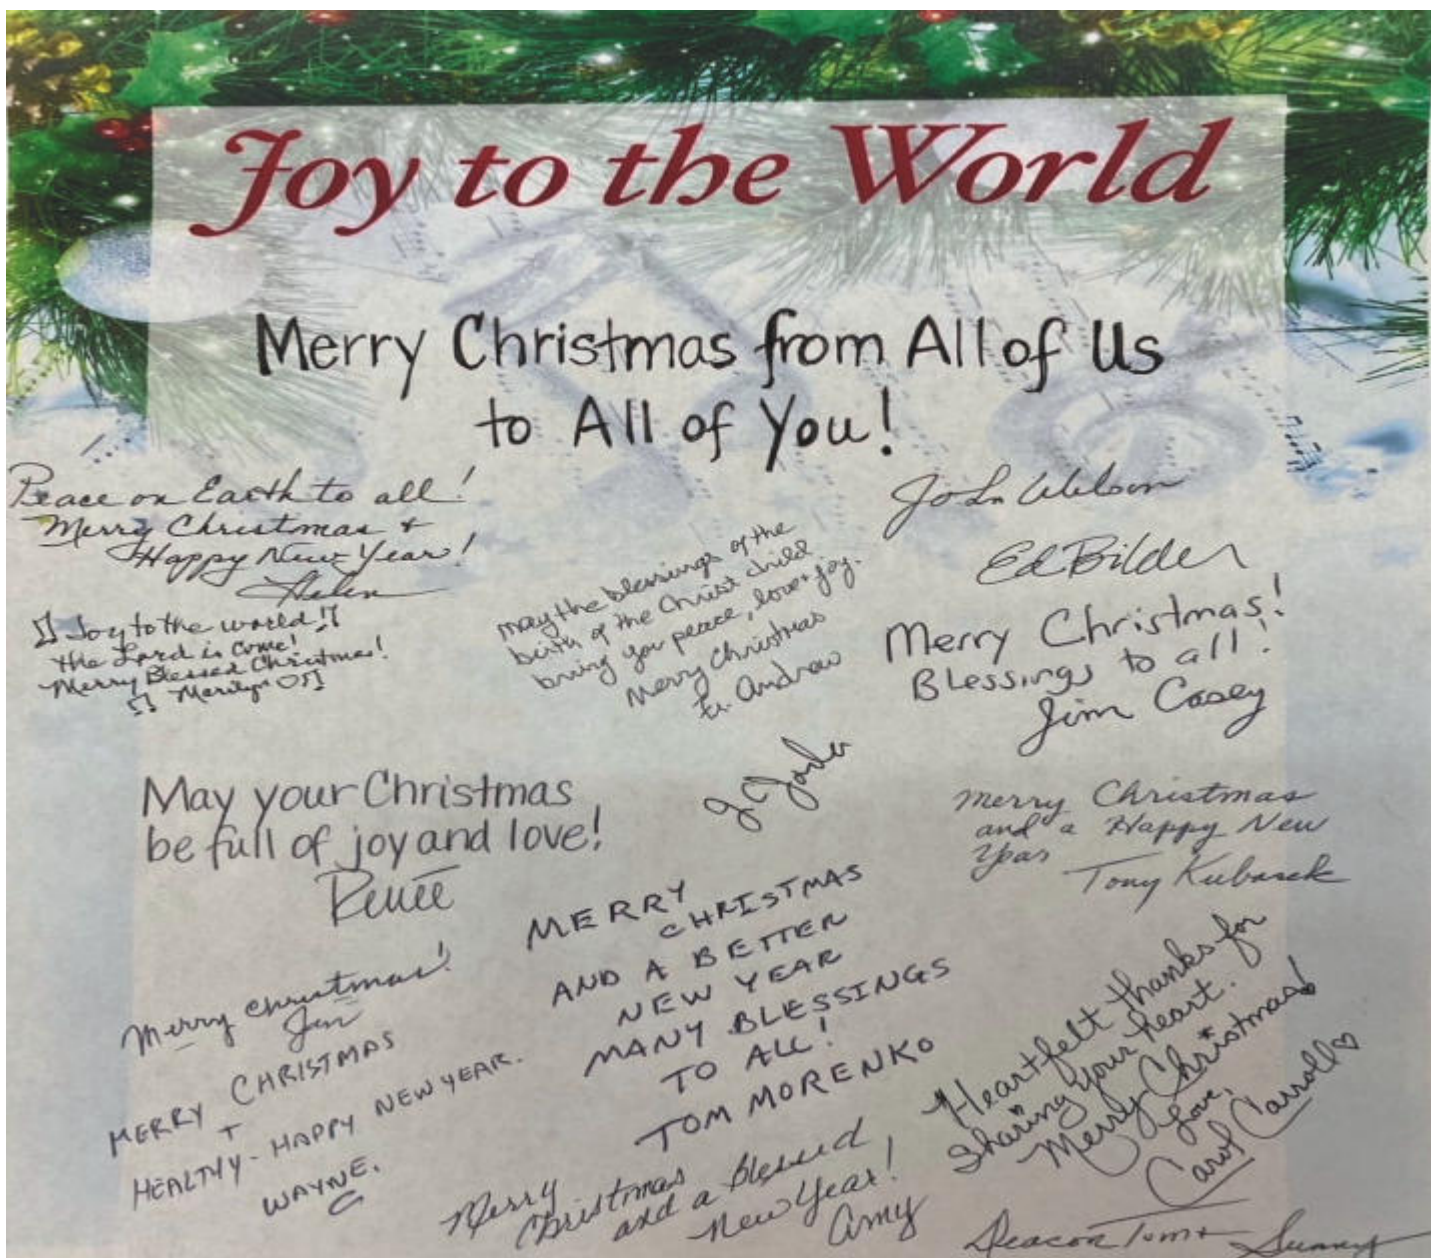 Joy to the World
Merry Christmas from All of Us
to All of You!
Peace on Earth to all!
Merry Christmas +
Happy New Year!
Helen
Joy to the world!
the Lord is Come!
Merry Blessed Christmas!
Marilyn
May the blessings of the
birth of the Christ child
bring you peace, love + joy.
Merry Christmas
Fr. Andrew
John Wilson
Ed Bilder
Merry Christmas!
Blessings to all!
Jim Casey
May your Christmas
be full of joy and love!
Renée
Merry Christmas
and a Happy New
Year
Tony Kubasek
Merry Christmas!
Jen
MERRY CHRISTMAS
+
HEALTHY - HAPPY NEW YEAR.
WAYNE.
MERRY
CHRISTMAS
AND A BETTER
NEW YEAR
MANY BLESSINGS
TO ALL!
TOM MORENKO
Merry
Christmas
and a Blessed
New Year!
Amy
Heartfelt thanks for
sharing your heart.
Merry Christmas!
Love,
Carol Carroll
Deacon Tom +